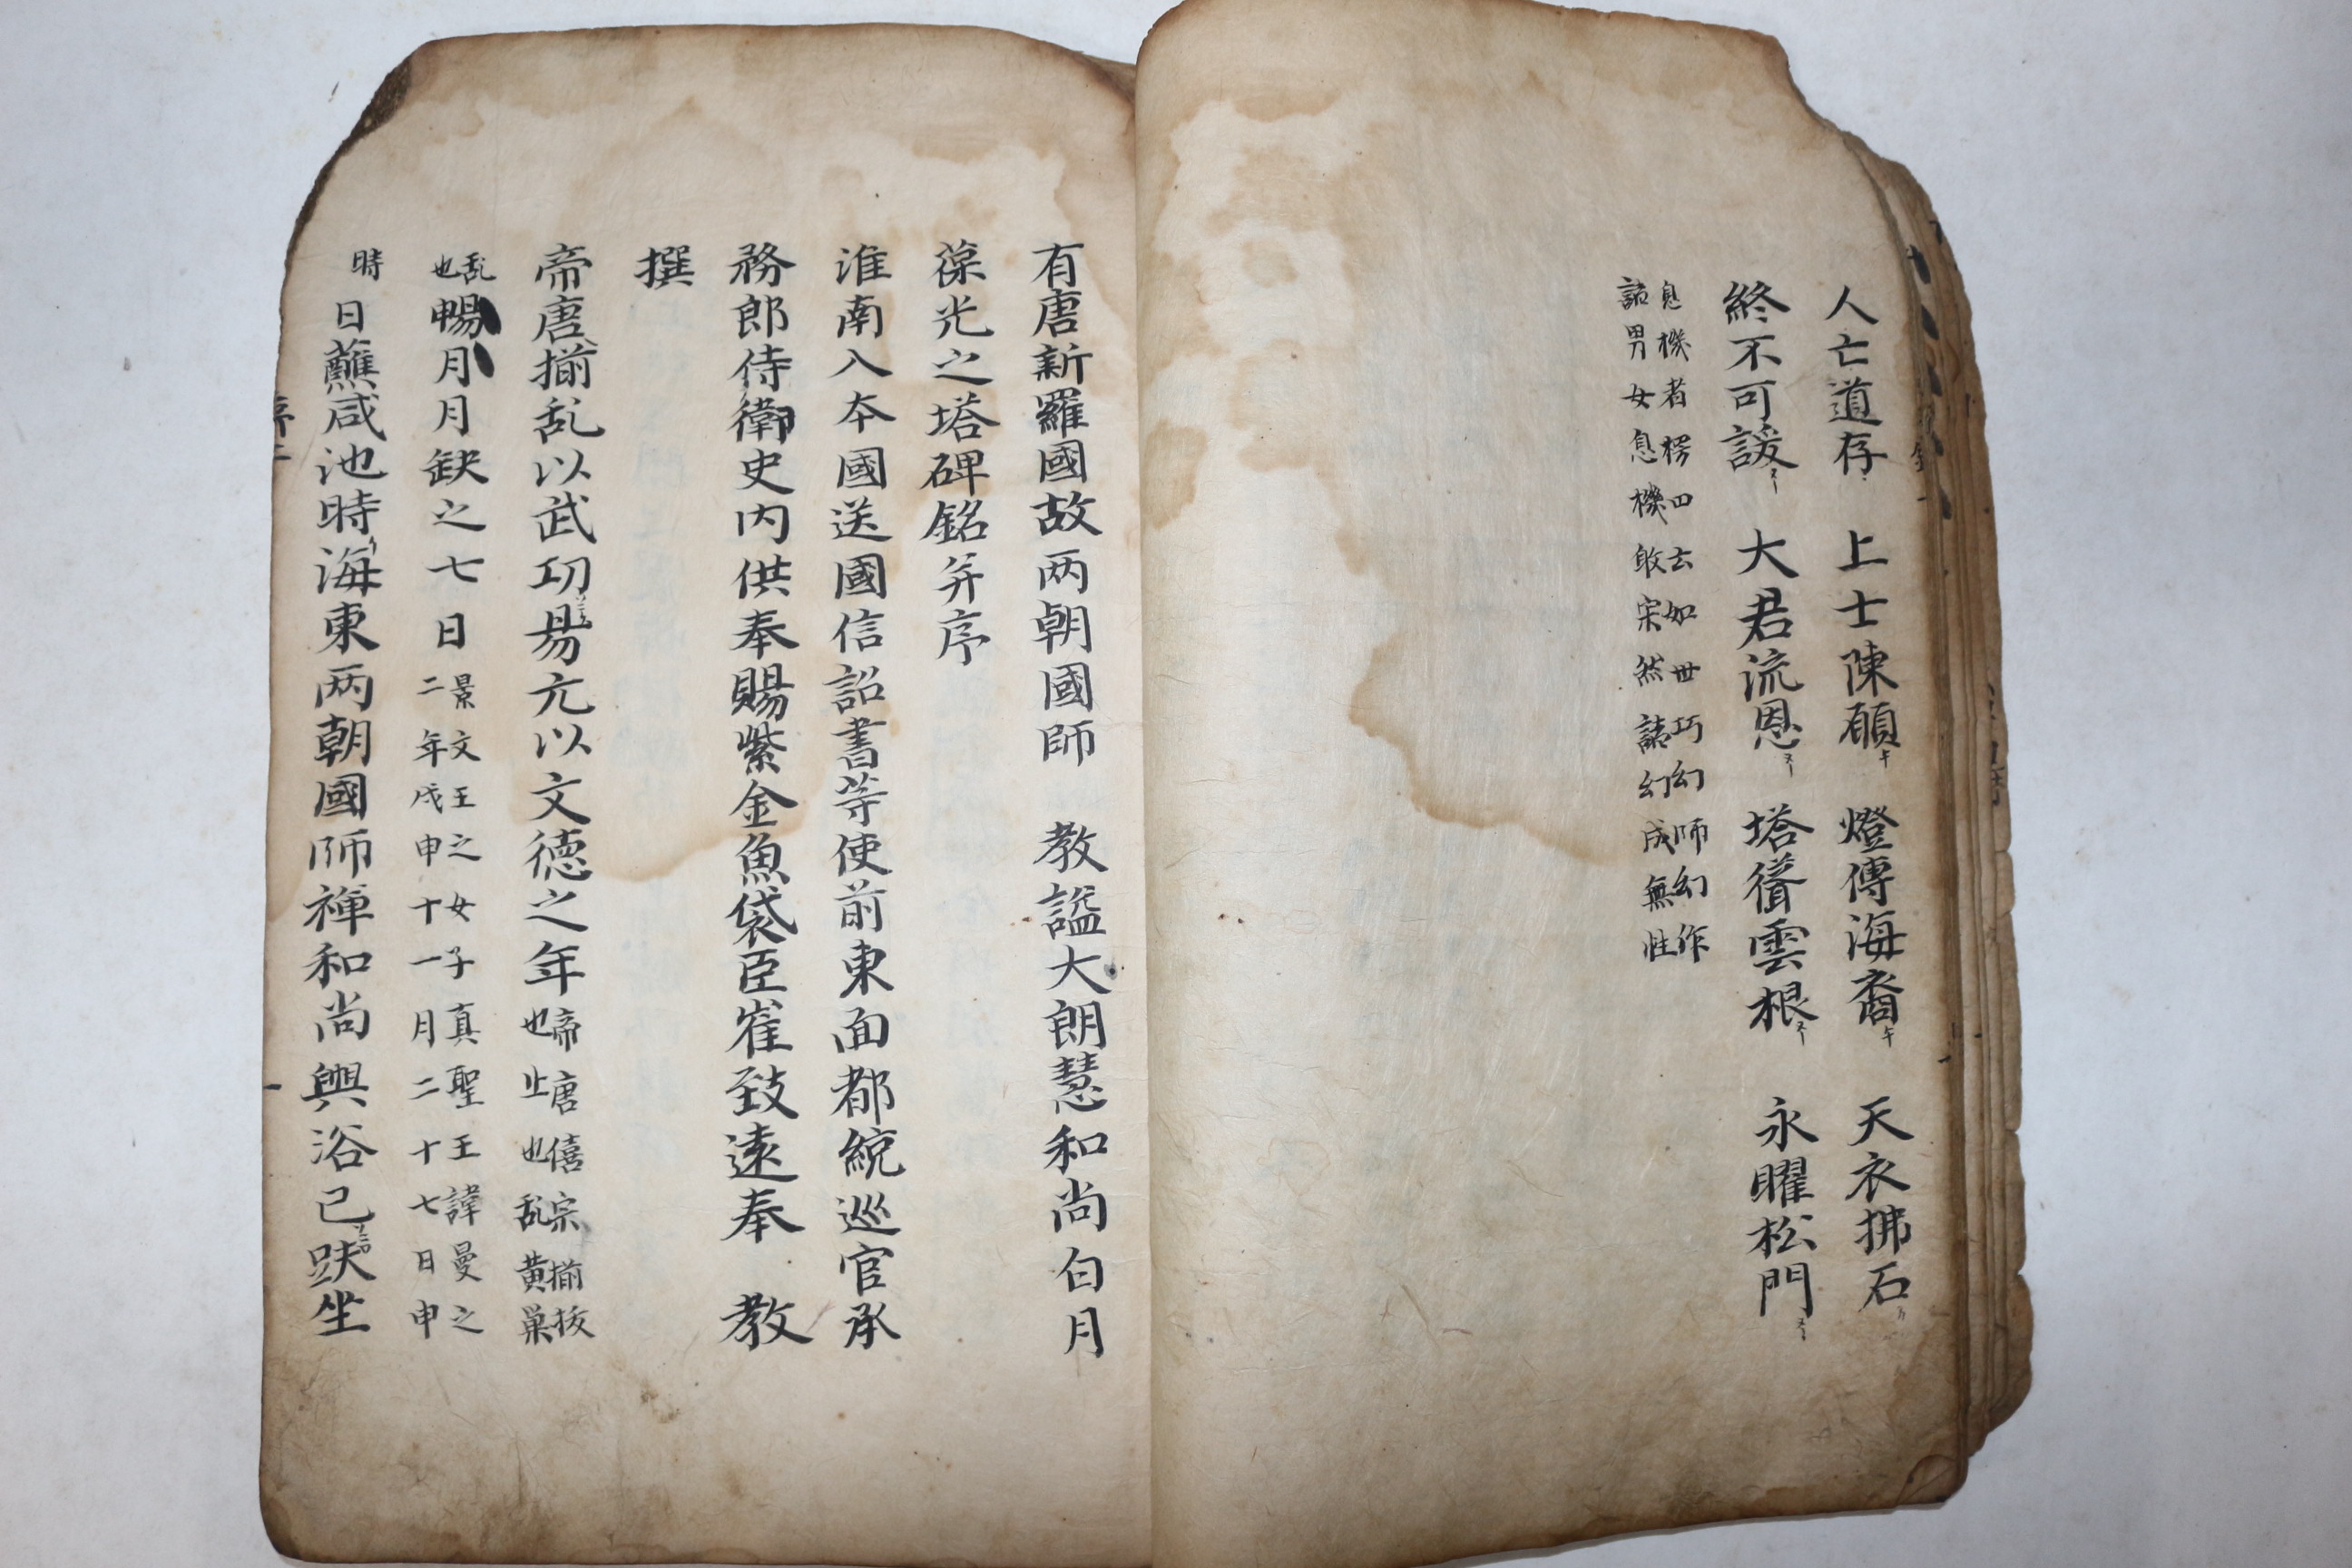 人亡道存 上士陳願 燈傳海裔 天衣拂石
終不可諼 大君流恩 塔聳雲根 永曜松門
息機者楞四云如世巧幻師幻作
諸男女息機㪣宋然諸幻成無性
有唐新羅國故两朝國師 教謚大朗慧和尚白月
葆光之塔碑銘并序
淮南入夲國送國信詔書等使前東面都統巡官承
務郎侍衛史内供奉賜紫金魚袋臣崔致遠奉 教
撰
帝唐揃乱以武功易元以文德之年帝唐僖宗揃拔也止也乱黄巢
乱也暢月月缺之七日景文王之女子真聖王諱曼之二年戊申十一月二十七日申
時日蘸咸池時海東两朝國師禅和尚興浴已趺坐